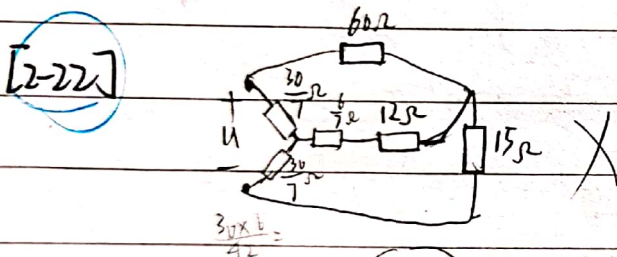 [2-22]
60Ω
30/7 Ω
12Ω
+
u
-
15Ω
30/7 Ω
30×6/42 =